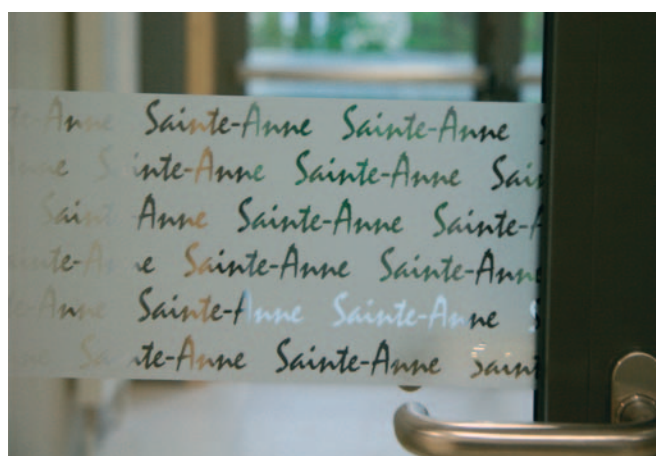 te-Anne Sainte-Anne Sainte-Anne S
inte-Anne Sainte-Anne Sain
Sainte-Anne Sainte-Anne Sainte-A
inte-Anne Sainte-Anne Sainte-Anne
te-Anne Sainte-Anne Sainte-Anne S
Sainte-Anne Sainte-Anne Saint